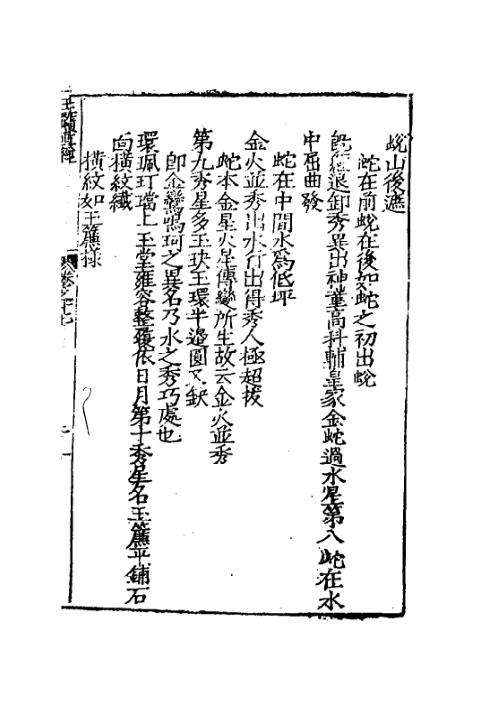 蛻山後遮
蛇在前蛻在後如蛇之初出蛻
既經退卸秀異出神童高科輔皇家金蛇過水星第八蛇在水
中屈曲發
蛇在中間水爲低坪
金火並秀出水行出得秀人極超拔
蛇本金星火星傳變所生故云金火並秀
第九秀星多玉玦玉環半邉圓又缺
卽金鸞鳴珂之異名乃水之秀巧處也
環珮玎璫上玉堂雍容整履依日月第十秀星名玉簾平鋪石
面橫紋纖
橫紋如玉簾樣
卷之十七